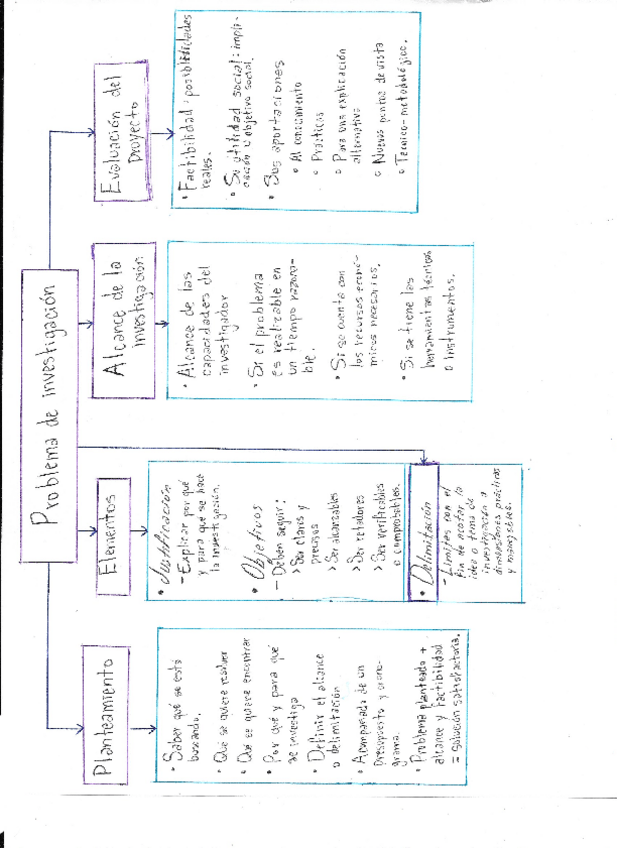 Problema de investigación
Planteamiento
• Saber qué se está
buscando.
• Qué se quiere resolver
• Qué se quiere encontrar
• Por qué y para qué
se investiga
• Definir el alcance
o delimitación
• Acompañada de un
presupuesto y crono-
grama.
• Problema planteado +
alcance y factibilidad
= solución satisfactoria.
Elementos
• Justificación
- Explicar por qué
y para qué se hace
la investigación.
• Objetivos
- Deben seguir:
> Ser claros y
precisos
> Ser alcanzables
> Ser retadores
> Ser verificables
o comprobables.
• Delimitación
- Límites con el
fin de acotar la
idea o tema de
investigación a
dimensiones prácticas
y manejables.
Alcance de la
investigación
• Alcance de las
capacidades del
investigador
• Si el problema
es realizable en
un tiempo razona-
ble.
• Si se cuenta con
los recursos econó-
micos necesarios.
• Si se tiene las
herramientas técnicas
o instrumentos.
Evaluación del
proyecto
• Factibilidad: posibilidades
reales.
• Su utilidad social: impli-
cación u objetivo social.
• Sus aportaciones
○ Al conocimiento
○ Prácticos
○ Para una explicación
alternativa
○ Nuevos puntos de vista
○ Técnico-metodológico.